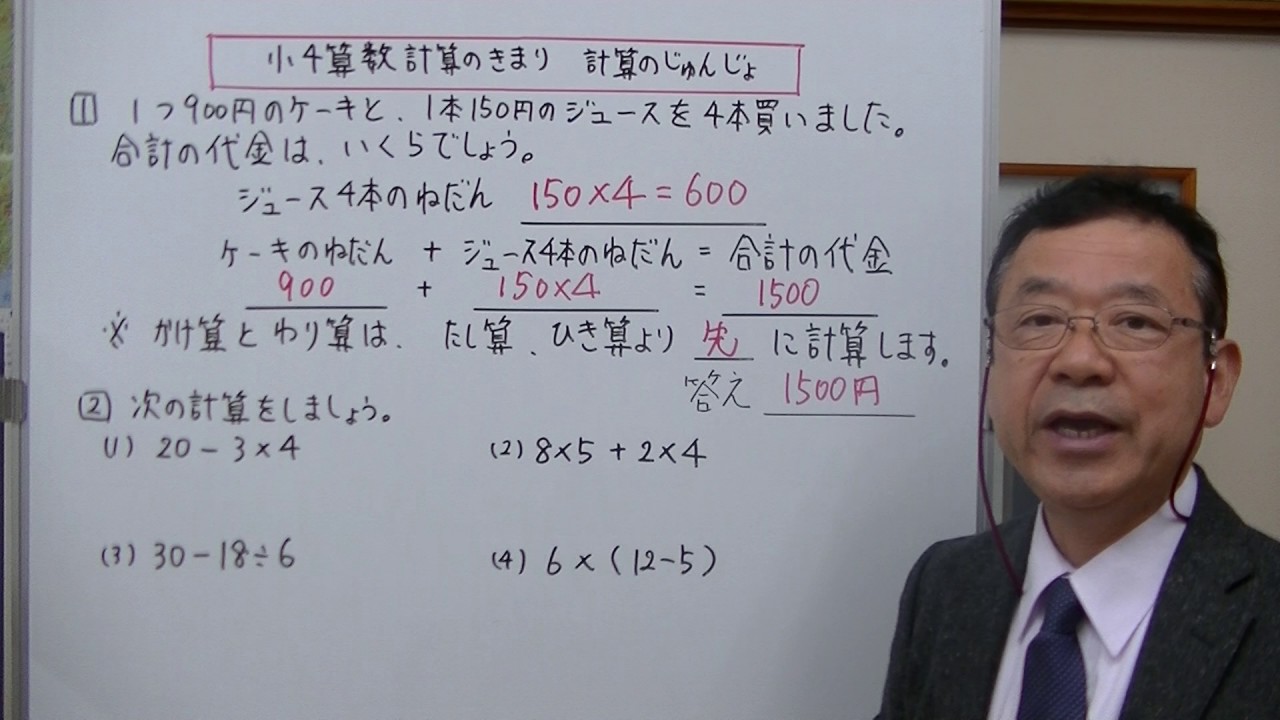 小4算数計算のきまり 計算のじゅんじょ
1 1つ900円のケーキと、1本150円のジュースを4本買いました。
合計の代金は、いくらでしょう。
ジュース4本のねだん 150×4=600
ケーキのねだん + ジュース4本のねだん = 合計の代金
900 + 150×4 = 1500
※ かけ算とわり算は、たし算、ひき算より 先 に計算します。
答え 1500円
2 次の計算をしましょう。
(1) 20-3×4 (2) 8×5+2×4
(3) 30-18÷6 (4) 6×(12-5)